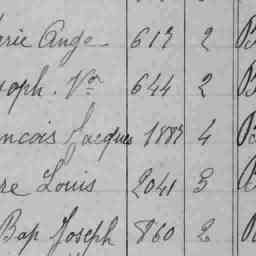 arie Ange 617 2 B
oseph. Vor 644 2 B
ancois Jacques 1887 4 B
re Louis 2041 3 B
Bap Joseph 860 2 B